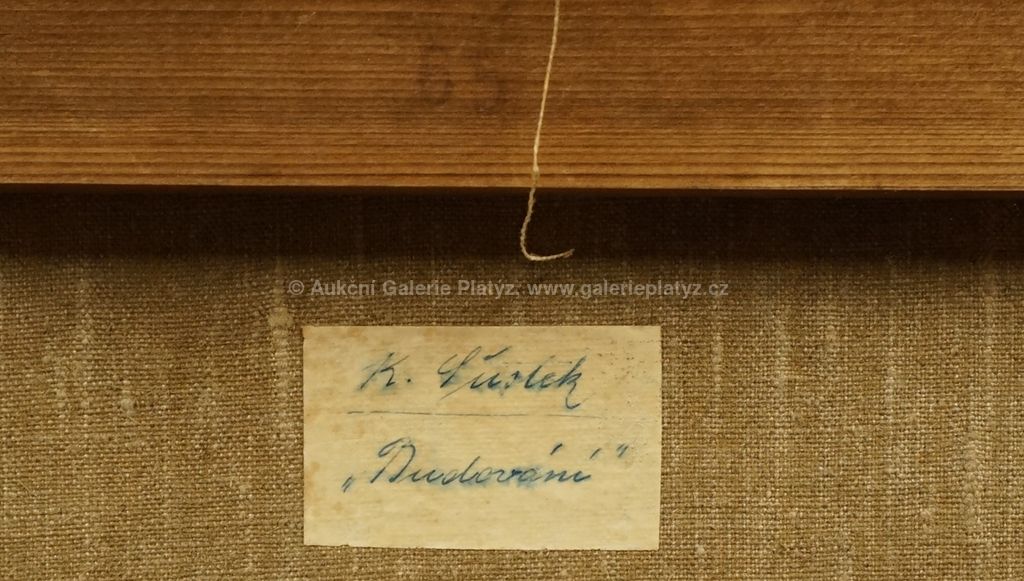 © Aukční Galerie Platýz, www.galerieplatyz.cz
K.
„Budování"